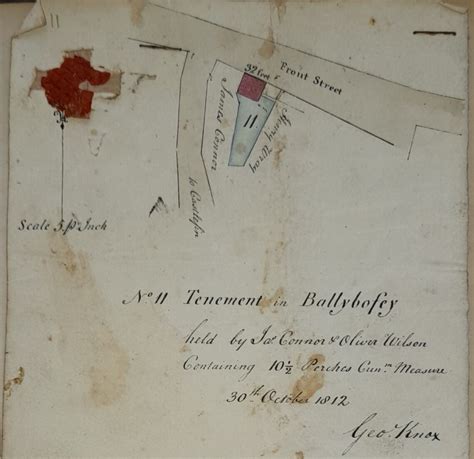 11
32 feet
Front Street
James Connor
11
Henry Wray
to Castlefin
Scale 5 p Inch
No 11 Tenement in Ballybofey
held by Jas Connor & Oliver Wilson
Containing 10½ Perches Cunm Measure
30th October 1812
Geo. Knox